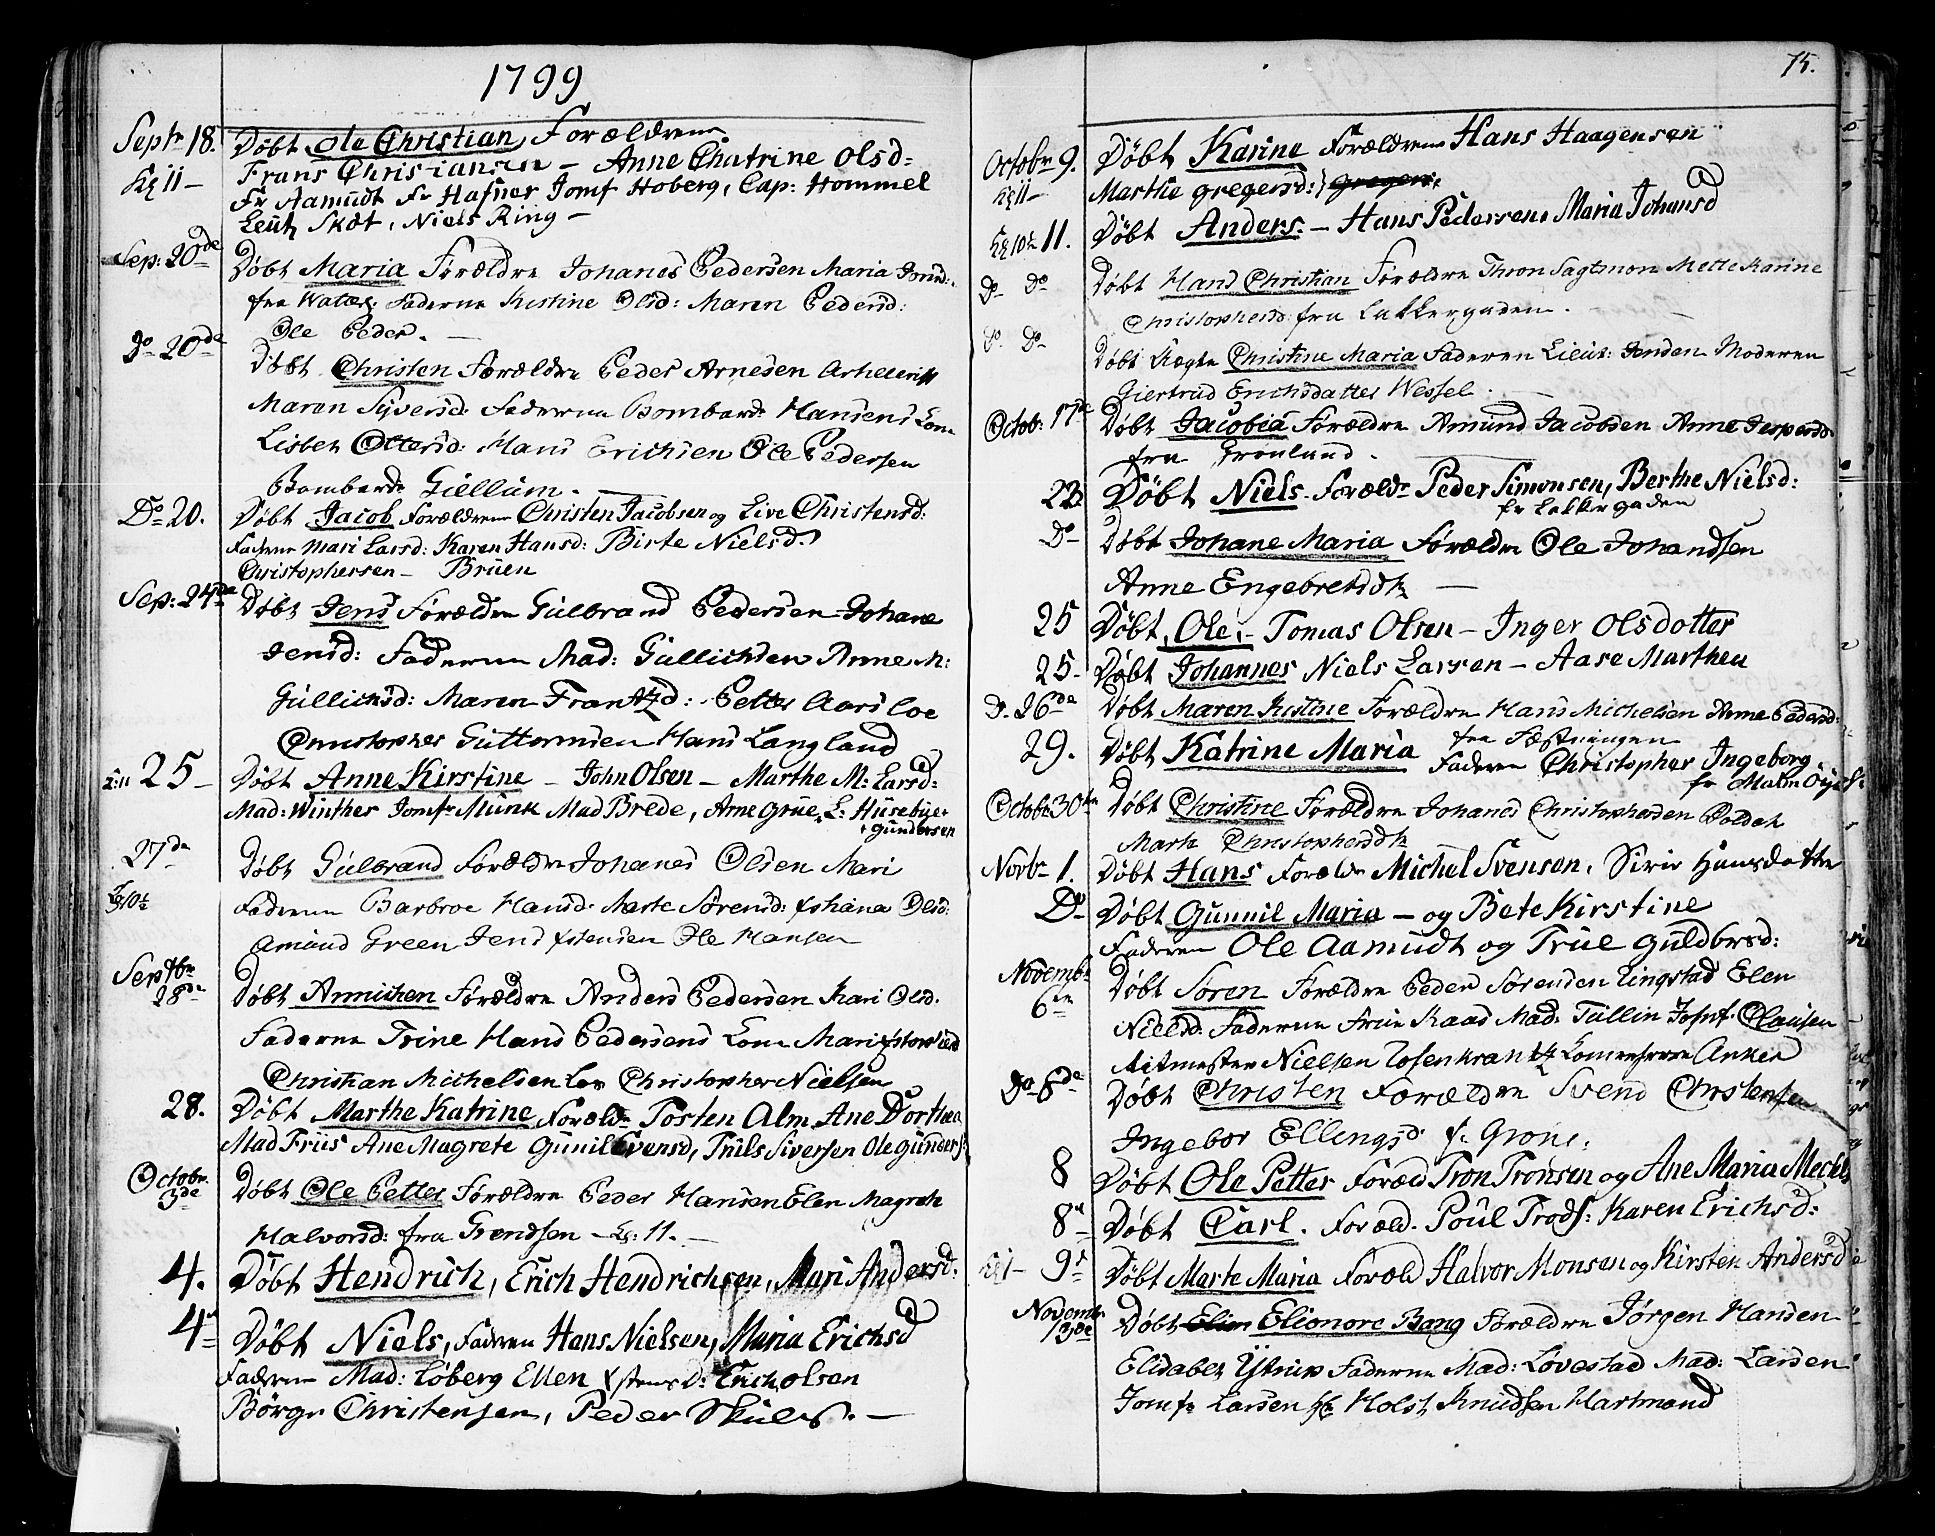 1799
Septr 18. Døbt Ole Christian Forældrene
Kl 11 – Frans Christiansen – Anne Chatrine Olsd=
Fr Aamudt Fr Hafner Jomf Hoberg, Cap: Hommel
Leut Skøt, Niels Ring –
Sep: 20de Døbt Maria Forældre Johanes Pedersen Maria
fra Faderne Kistine Olsd: Maren Pedersd:
Ole Peder. –
Do 20de
Døbt Christen Forældre Peder Arnesen
Maren Syversd: Faderne Bombard: Hansens Kone
Lisbet Ottersd: Hans Erichsen Ole Pedersen
Bombard: Giellum. –
Do 20. Døbt Jacob Forældrene Christen Jacobsen og Live Christensd:
Faderne Mari Larsd: Karen Hansd: Birte Nielsd.
Christophersen – Bruen
Sep: 24de Døbt Jens Forældre Gulbrand Pedersen Johane
Jensd: Faderne Mad: Gullichsen Anne M:
Gullichsd: Maren Frantzd: Petter Aarsloe
Christopher Guttormsen Hans Langland
25 – Døbt Anne Kirstine – John Olsen – Marthe M: Larsd:
Mad: Winther Jomfr Munk Mad Brede, Arne Grue, L: Husebÿe
Gundersen
27de Døbt Gulbrand Forældre Johanes Olsen Mari
Faderne Barbroe Hansd: Marte Sørensd: Johana Olsd:
Amund Green Jens Ole Hansen
Septbr 28de Døbt Annichen Forældre Anders Pedersen Kari Olsd.
Faderne Trine Hans Pedersens Kone Mari
Christian Michelsen Christopher Nielsen
28. Døbt Marthe Katrine Foræld: Tosten Alm Ane Dorthea
Mad Friis Ane Magrete Gunil Evensd, Truls Siversen Ole Gunders:
Octobr 3de Døbt Ole Petter Forældre Peder Hansen Elen Magrete
Halvorsd: fra Grendsen – Kl: 11. –
4. Døbt Hendrich, Erich Hendrichsen, Mari Andersd:
4de Døbt Niels, Faderen Hans Nielsen, Maria Erichsd
Faderne Mad: Løberg Ellen Xstensd: Erich Olsen
Børge Christensen, Peder Skule. –
75.
Octobr 9. Døbt Karine Forældrene Hans Haagensen
Kl 11 – Marthe Gregersd:
Kl 10½ 11. Døbt Anders. – Hans Pedersen, Maria Johansd
Do Do Døbt Hans Christian Forældre Thron Sagtmon Mette Karine
Christophersd: fra Lakkergaden. –
Do Do Døbt Christine Maria Faderen Lieut: Jensen Moderen
Giertrud Erichsdatter Wessel.
Octob: 17de Døbt Jacobia Forældre Amund Jacobsen Anne Jespersd:
fra Grønland.
22 Døbt Niels. Foræld: Peder Simonsen, Berthe Nielsd:
fr Lakkergaden
Do Døbt Johane Maria Forældre Ole Johandsen
Anne Engebretsdt –
25 Døbt, Ole, – Tomas Olsen – Inger Olsdotter
25 – Døbt Johannes Niels Larsen – Aase Marthea
D. 26de Døbt Maren Kistine Forældre Hans Michelsen Anne Pedersd:
fra Fæstningen
29. Døbt Katrine Maria Faderen Christopher Ingeborg
fr Malm Øye
Octobr 30te Døbt Christine Forældre Johanes Christophersen Soldat
Marte Christophersdt
Novbr 1. Døbt Hans Forældre Michel Svensen, Siri Hansdatte
Do Døbt Gunnil Maria – og Bete Kirstine
Faderen Ole Aamudt og Trüe Guldbrsd:
Novemb: 6te Døbt Søren Forældre Peder Sørensen Ringstad Elen
Nielsd: Faderne Frue Kaas Mad: Tullin Jomf. Clausen
Ritmester Nielsen Rosenkrantz Anker
Do 8de Døbt Christen Forældre Svend Christensen
Ingebor Ellengsd fr Grøn:
8 Døbt Ole Petter Foræld Tron Trønsen og Ane Maria Mechels
8de Døbt Carl. Foræld. Poul Trods: Karen Erichsd:
9de Døbt Marte Maria Foræld Halvor Monsen og Kirsten Andersd
Novembr 13de Døbt Elionore Bang Forældre Jørgen Hansen
Elisabet Ystrup Faderne Mad: Løvestad Mad: Larsen
Jomfr Larsen Hr Holst Knudsen Hartmand